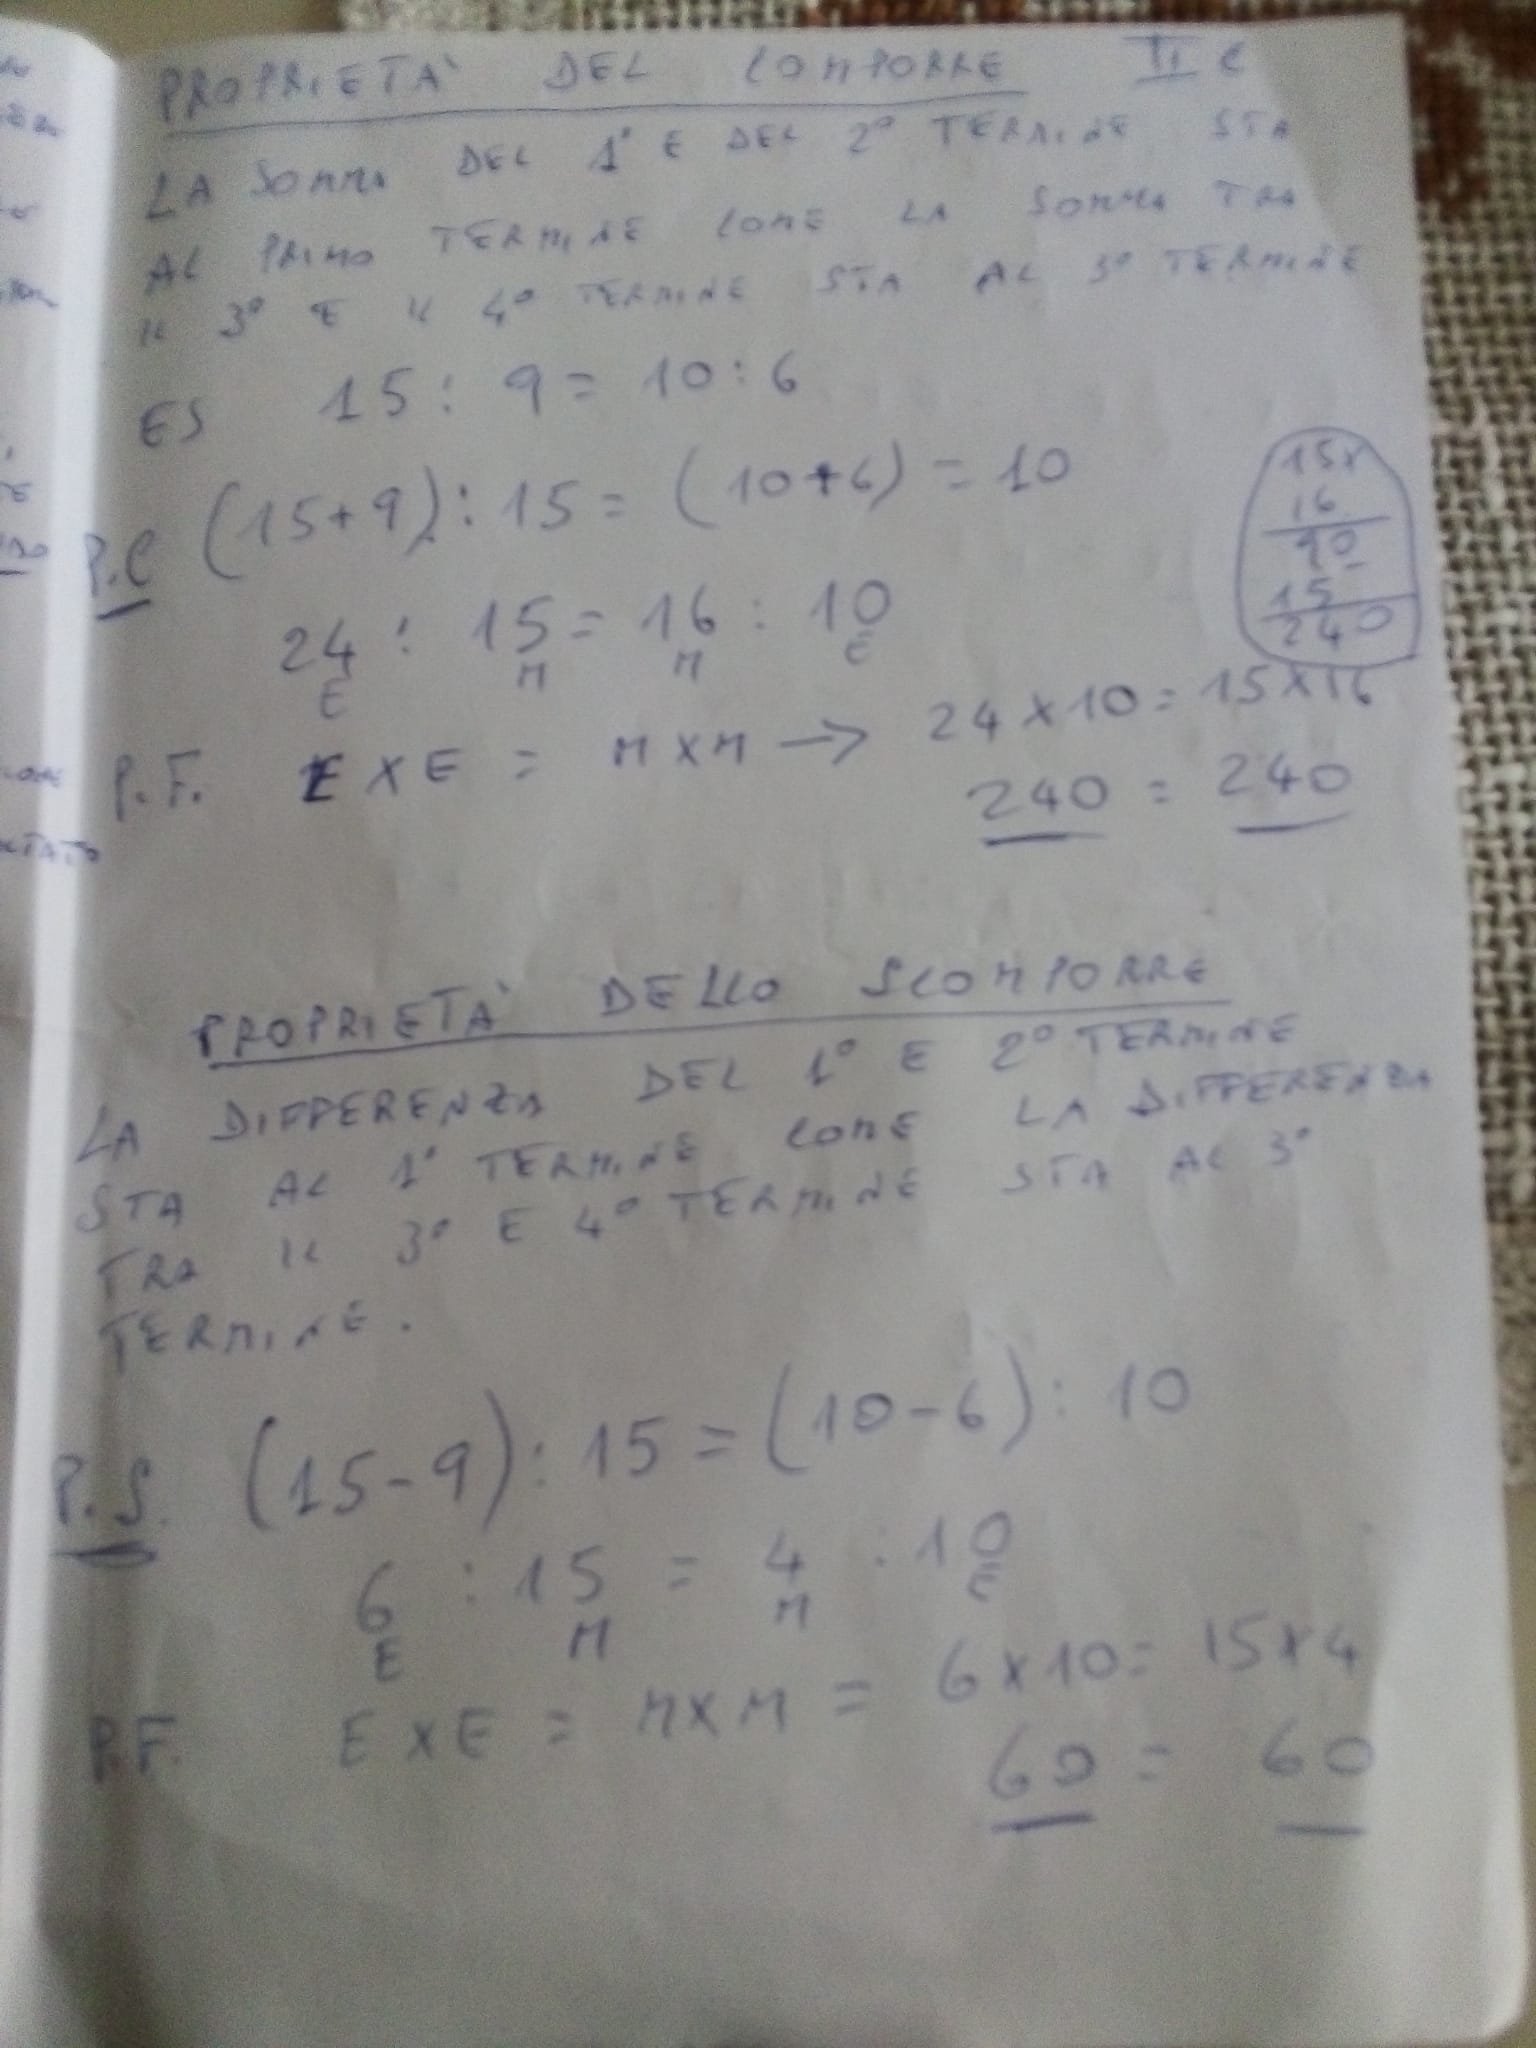 PROPRIETA' DEL COMPORRE II C
LA SOMMA DEL 1° E DEL 2° TERMINE STA
AL PRIMO TERMINE COME LA SOMMA TRA
IL 3° E IL 4° TERMINE STA AL 3° TERMINE
ES 15 : 9 = 10 : 6
P.C (15+9) : 15 = (10+6) = 10
15x
16
90
15
240
24 : 15 = 16 : 10
E M M E
P.F. E X E = M X M → 24 x 10 = 15 x 16
240 = 240
PROPRIETA' DELLO SCOMPORRE
LA DIFFERENZA DEL 1° E 2° TERMINE
STA AL 1° TERMINE COME LA DIFFERENZA
TRA IL 3° E 4° TERMINE STA AL 3°
TERMINE.
P.S. (15-9) : 15 = (10-6) : 10
6 : 15 = 4 : 10
E M M E
P.F. E X E = M X M = 6 x 10 = 15 x 4
60 = 60